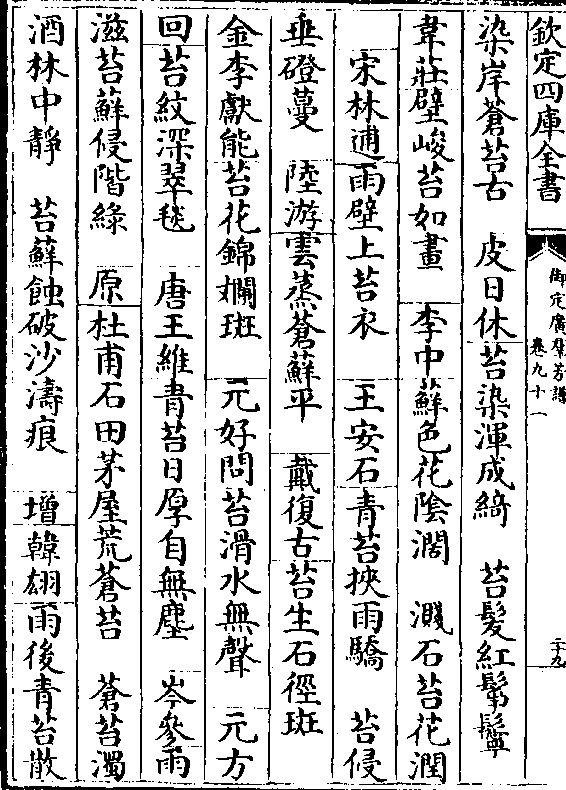 欽定四庫全書
御定廣羣芳譜
卷九十一
二十九
染岸蒼苔古 皮日休苔染渾成綺 苔髮紅鬇鬡
韋莊壁峻苔如畫 李中蘚色花陰濶 濺石苔花潤
宋林逋雨壁上苔衣 王安石青苔挾雨驕 苔侵
垂磴蔓 陸游雲蒸蒼蘚平 戴復古苔生石徑斑
金李獻能苔花錦斕斑 元好問苔滑水無聲 元方
回苔紋深翠毯 唐王維青苔日厚自無塵 岑參雨
滋苔蘚侵階緑 原杜甫石田茅屋荒蒼苔 蒼苔濁
酒林中靜 苔蘚蝕破沙濤痕 增韓翃雨後青苔散